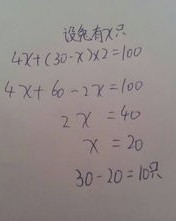 设兔有x只
4x+(30-x)x2=100
4x+60-2x=100
2x=40
x=20
30-20=10只